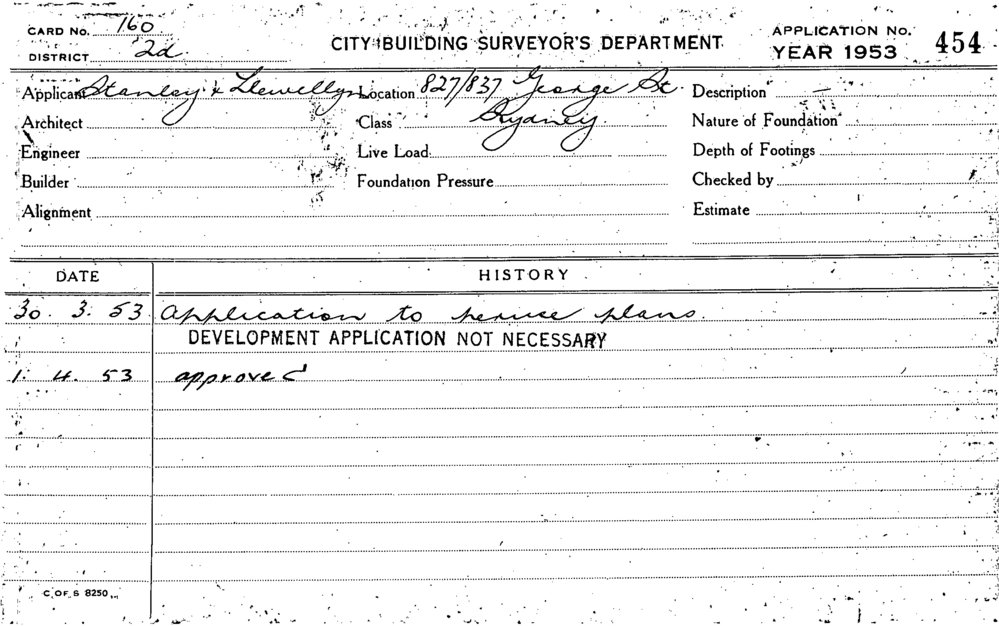 CARD No. 160
DISTRICT 2d
CITY BUILDING SURVEYOR'S DEPARTMENT
APPLICATION No. 454
YEAR 1953
Applicant Stanley & Llewellyn Location 827/837 George St. Description —
Architect Class Sydney. Nature of Foundation
Engineer Live Load Depth of Footings
Builder Foundation Pressure Checked by
Alignment Estimate
DATE HISTORY
30. 3. 53 Application to peruse plans.
DEVELOPMENT APPLICATION NOT NECESSARY
1. 4. 53 approved
C. OF S 8250